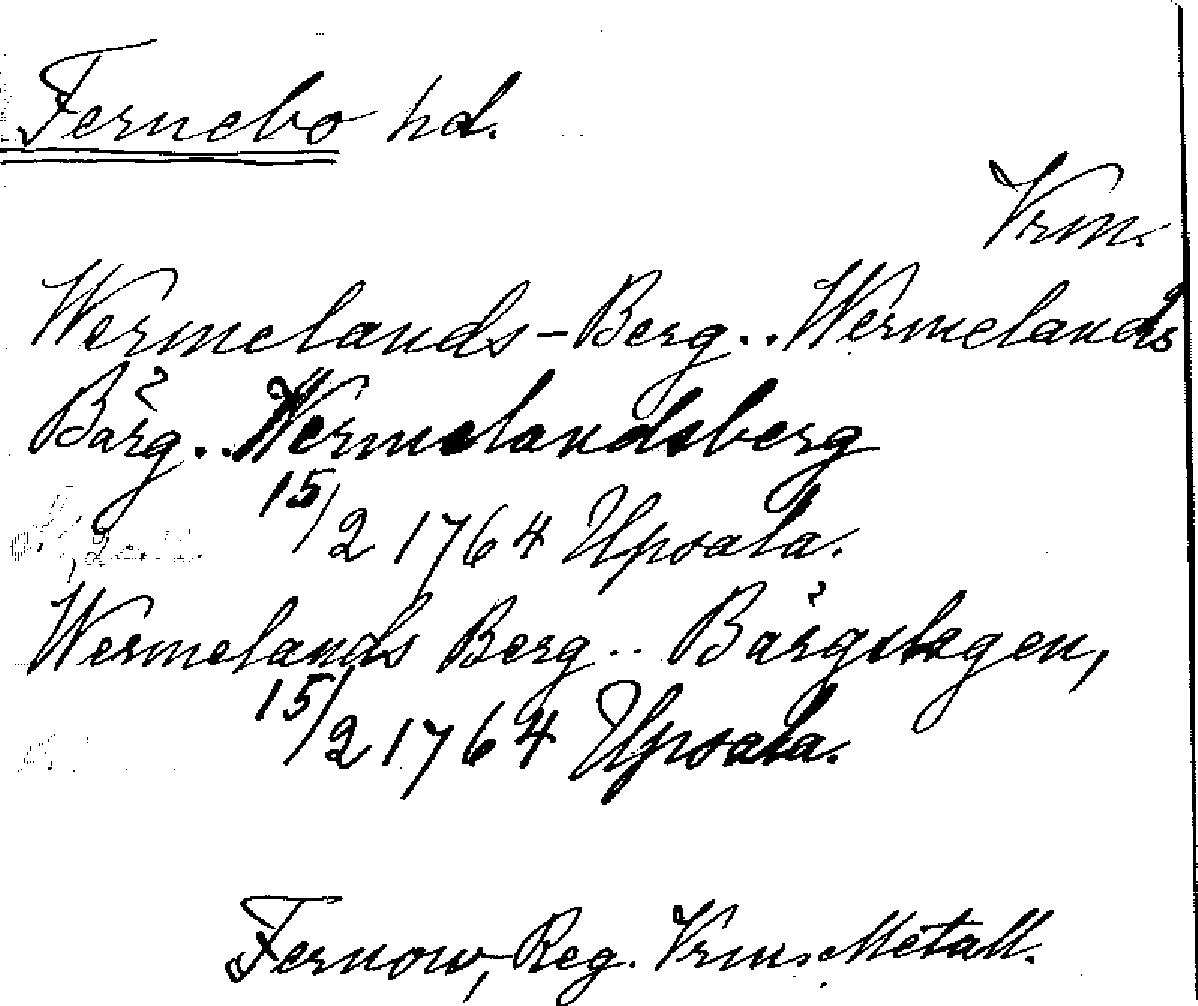 Fernebo hd.
Vrm.
Wermelands-Berg.. Wermelands
Bärg.. Wermelandsberg
15/2 1764 Upsala.
Wermelands Berg.. Bärgslagen,
15/2 1764 Upsala.
Fernow, Reg. Vrm. Metall.